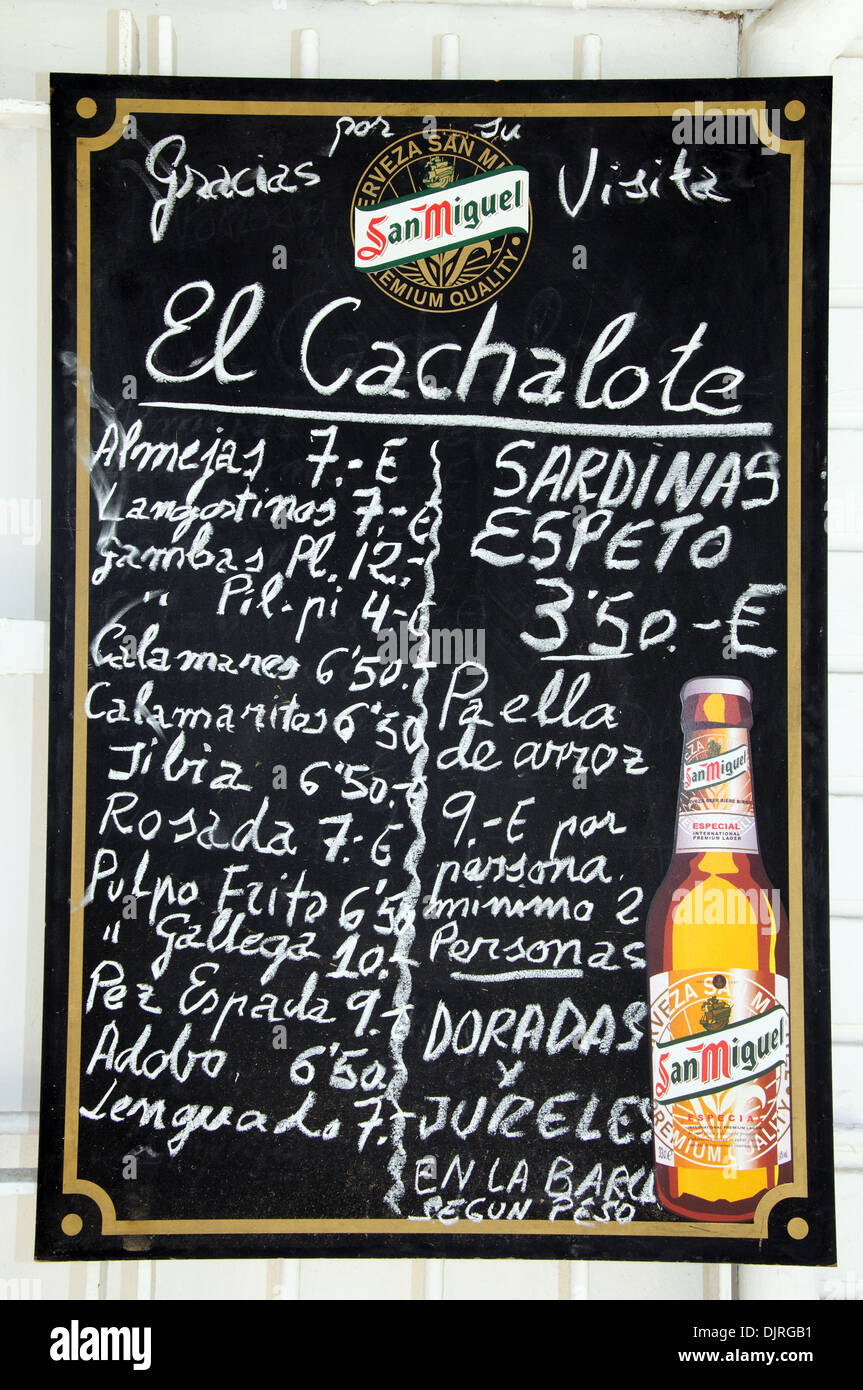 por su
Gracias Visita
CERVEZA SAN MI
San Miguel
PREMIUM QUALITY
El Cachalote
Almejas 7.-€
Langostinos 7.-€
Gambas Pl. 12.-
" Pil-pi 4-€
Calamares 6'50.-
Calamaritos 6'50
Jibia 6'50.-€
Rosada 7.-€
Pulpo Frito 6'50
" Gallega 10.-
Pez Espada 9.-
Adobo 6'50.
Lenguado 7.-
SARDINAS
ESPETO
3'50.-€
Paella
de arroz
9.-€ por
persona.
minimo 2
Personas
DORADAS
Y
JURELES
EN LA BARC
SEGUN PESO
San Miguel
ESPECIAL
INTERNATIONAL
PREMIUM LAGER
CERVEZA SAN MI
San Miguel
ESPECIAL
PREMIUM QUALITY
alamy stock photo
DJRGB1
www.alamy.com